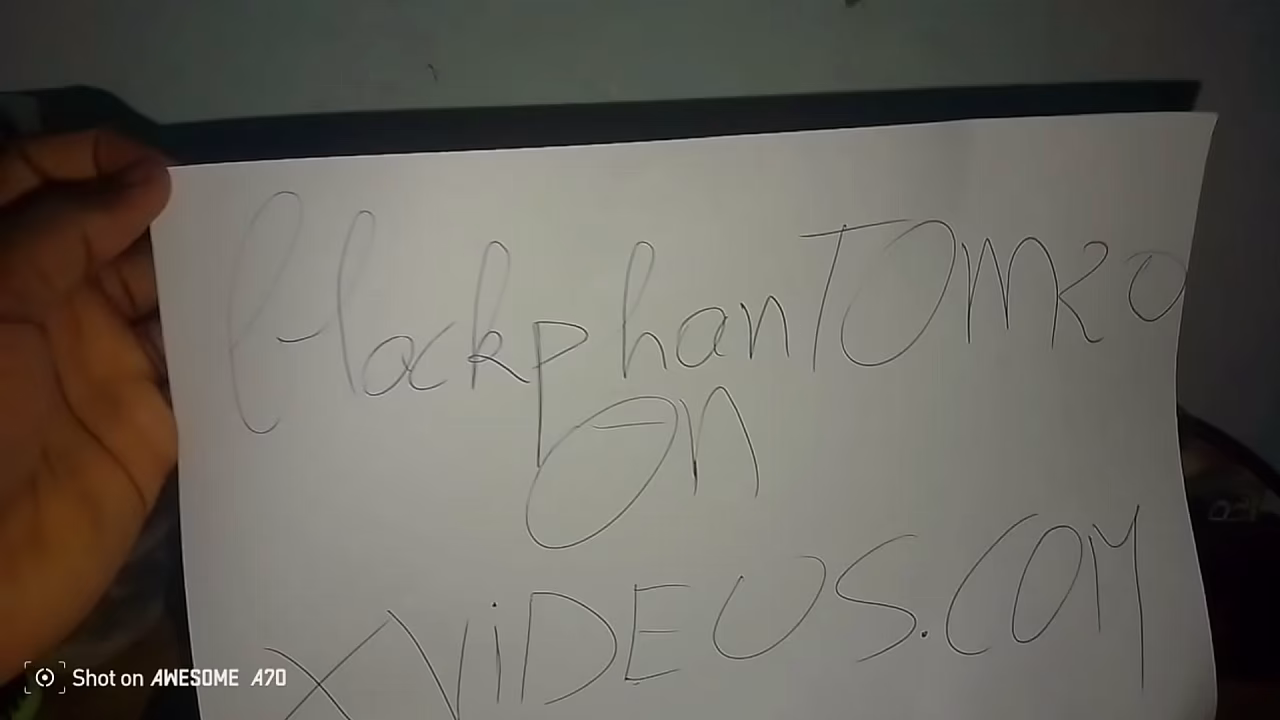 blackphanTOmzo
On
XViDEOS.COM
Shot on AWESOME A70